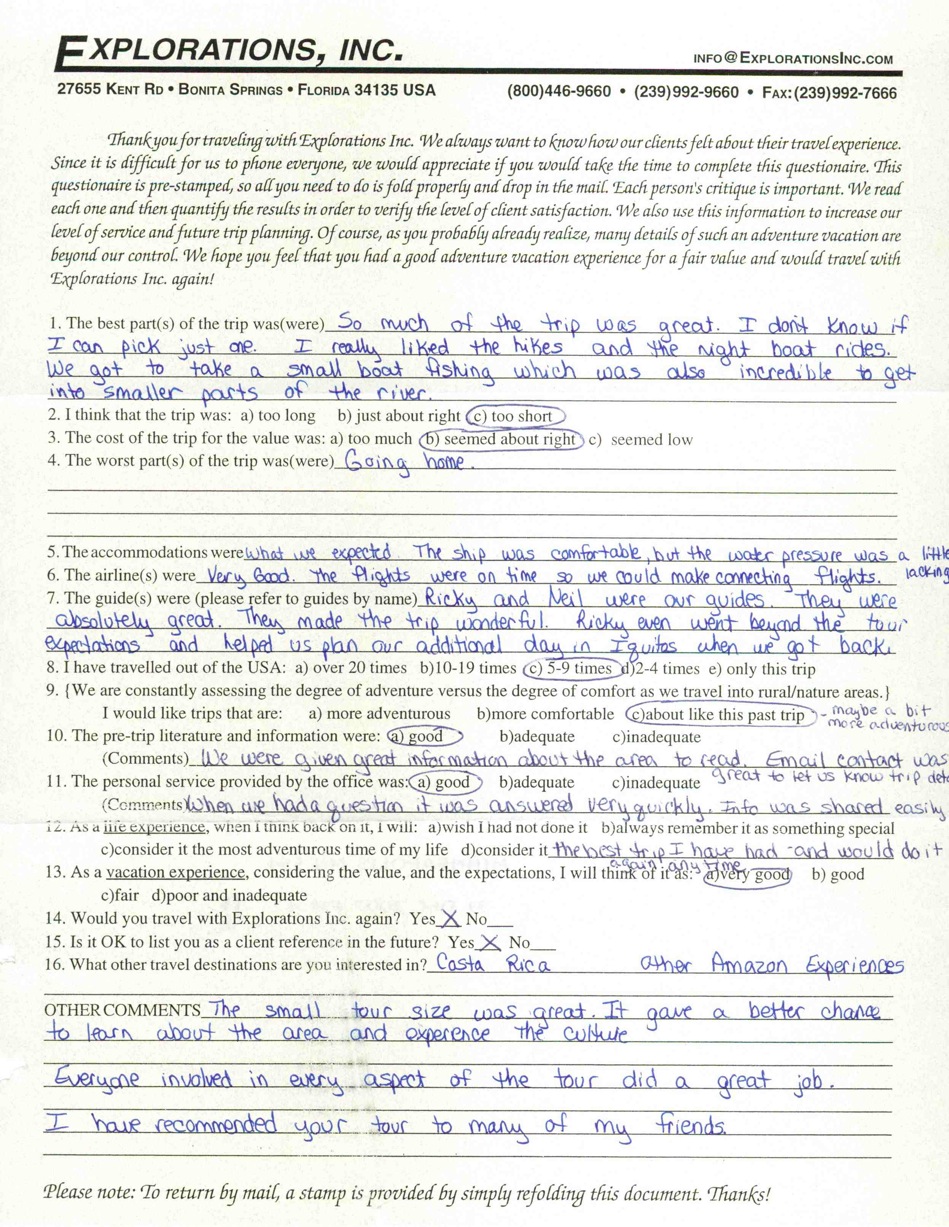 EXPLORATIONS, INC.
INFO@EXPLORATIONSINC.COM
27655 KENT RD • BONITA SPRINGS • FLORIDA 34135 USA (800)446-9660 • (239)992-9660 • FAX:(239)992-7666
Thank you for traveling with Explorations Inc. We always want to know how our clients felt about their travel experience.
Since it is difficult for us to phone everyone, we would appreciate if you would take the time to complete this questionaire. This
questionaire is pre-stamped, so all you need to do is fold properly and drop in the mail. Each person's critique is important. We read
each one and then quantify the results in order to verify the level of client satisfaction. We also use this information to increase our
level of service and future trip planning. Of course, as you probably already realize, many details of such an adventure vacation are
beyond our control. We hope you feel that you had a good adventure vacation experience for a fair value and would travel with
Explorations Inc. again!
1. The best part(s) of the trip was(were) So much of the trip was great. I don't know if
I can pick just one. I really liked the hikes and the night boat rides.
We got to take a small boat fishing which was also incredible to get
into smaller parts of the river.
2. I think that the trip was: a) too long b) just about right c) too short
3. The cost of the trip for the value was: a) too much b) seemed about right c) seemed low
4. The worst part(s) of the trip was(were) Going home.
5. The accommodations were what we expected. The ship was comfortable, but the water pressure was a little
lacking
6. The airline(s) were Very Good. The flights were on time so we could make connecting flights.
7. The guide(s) were (please refer to guides by name) Ricky and Neil were our guides. They were
absolutely great. They made the trip wonderful. Ricky even went beyond the tour
expectations and helped us plan our additional day in Iquitos when we got back.
8. I have travelled out of the USA: a) over 20 times b)10-19 times c) 5-9 times d)2-4 times e) only this trip
9. {We are constantly assessing the degree of adventure versus the degree of comfort as we travel into rural/nature areas.}
I would like trips that are: a) more adventurous b)more comfortable c)about like this past trip - maybe a bit
more adventurous
10. The pre-trip literature and information were: a) good b)adequate c)inadequate
(Comments) We were given great information about the area to read. Email contact was
great to let us know trip
11. The personal service provided by the office was: a) good b)adequate c)inadequate
(Comments) When we had a question it was answered very quickly. Info was shared easily
12. As a life experience, when I think back on it, I will: a)wish I had not done it b)always remember it as something special
c)consider it the most adventurous time of my life d)consider it the best trip I have had - and would do it
again any time
13. As a vacation experience, considering the value, and the expectations, I will think of it as: a)very good b) good
c)fair d)poor and inadequate
14. Would you travel with Explorations Inc. again? Yes X No
15. Is it OK to list you as a client reference in the future? Yes X No
16. What other travel destinations are you interested in? Costa Rica Other Amazon Experiences
OTHER COMMENTS The small tour size was great. It gave a better chance
to learn about the area and experence the culture
Everyone involved in every aspect of the tour did a great job.
I have recommended your tour to many of my friends.
Please note: To return by mail, a stamp is provided by simply refolding this document. Thanks!